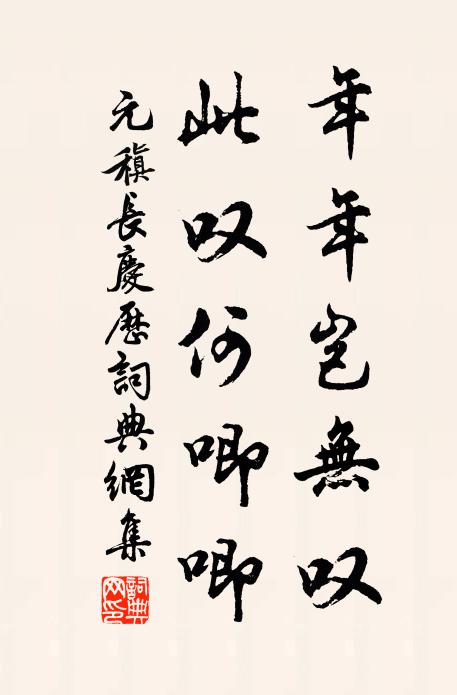 年年岂無叹
此叹何唧唧
元稹長慶歷詞典網集
詞典網印